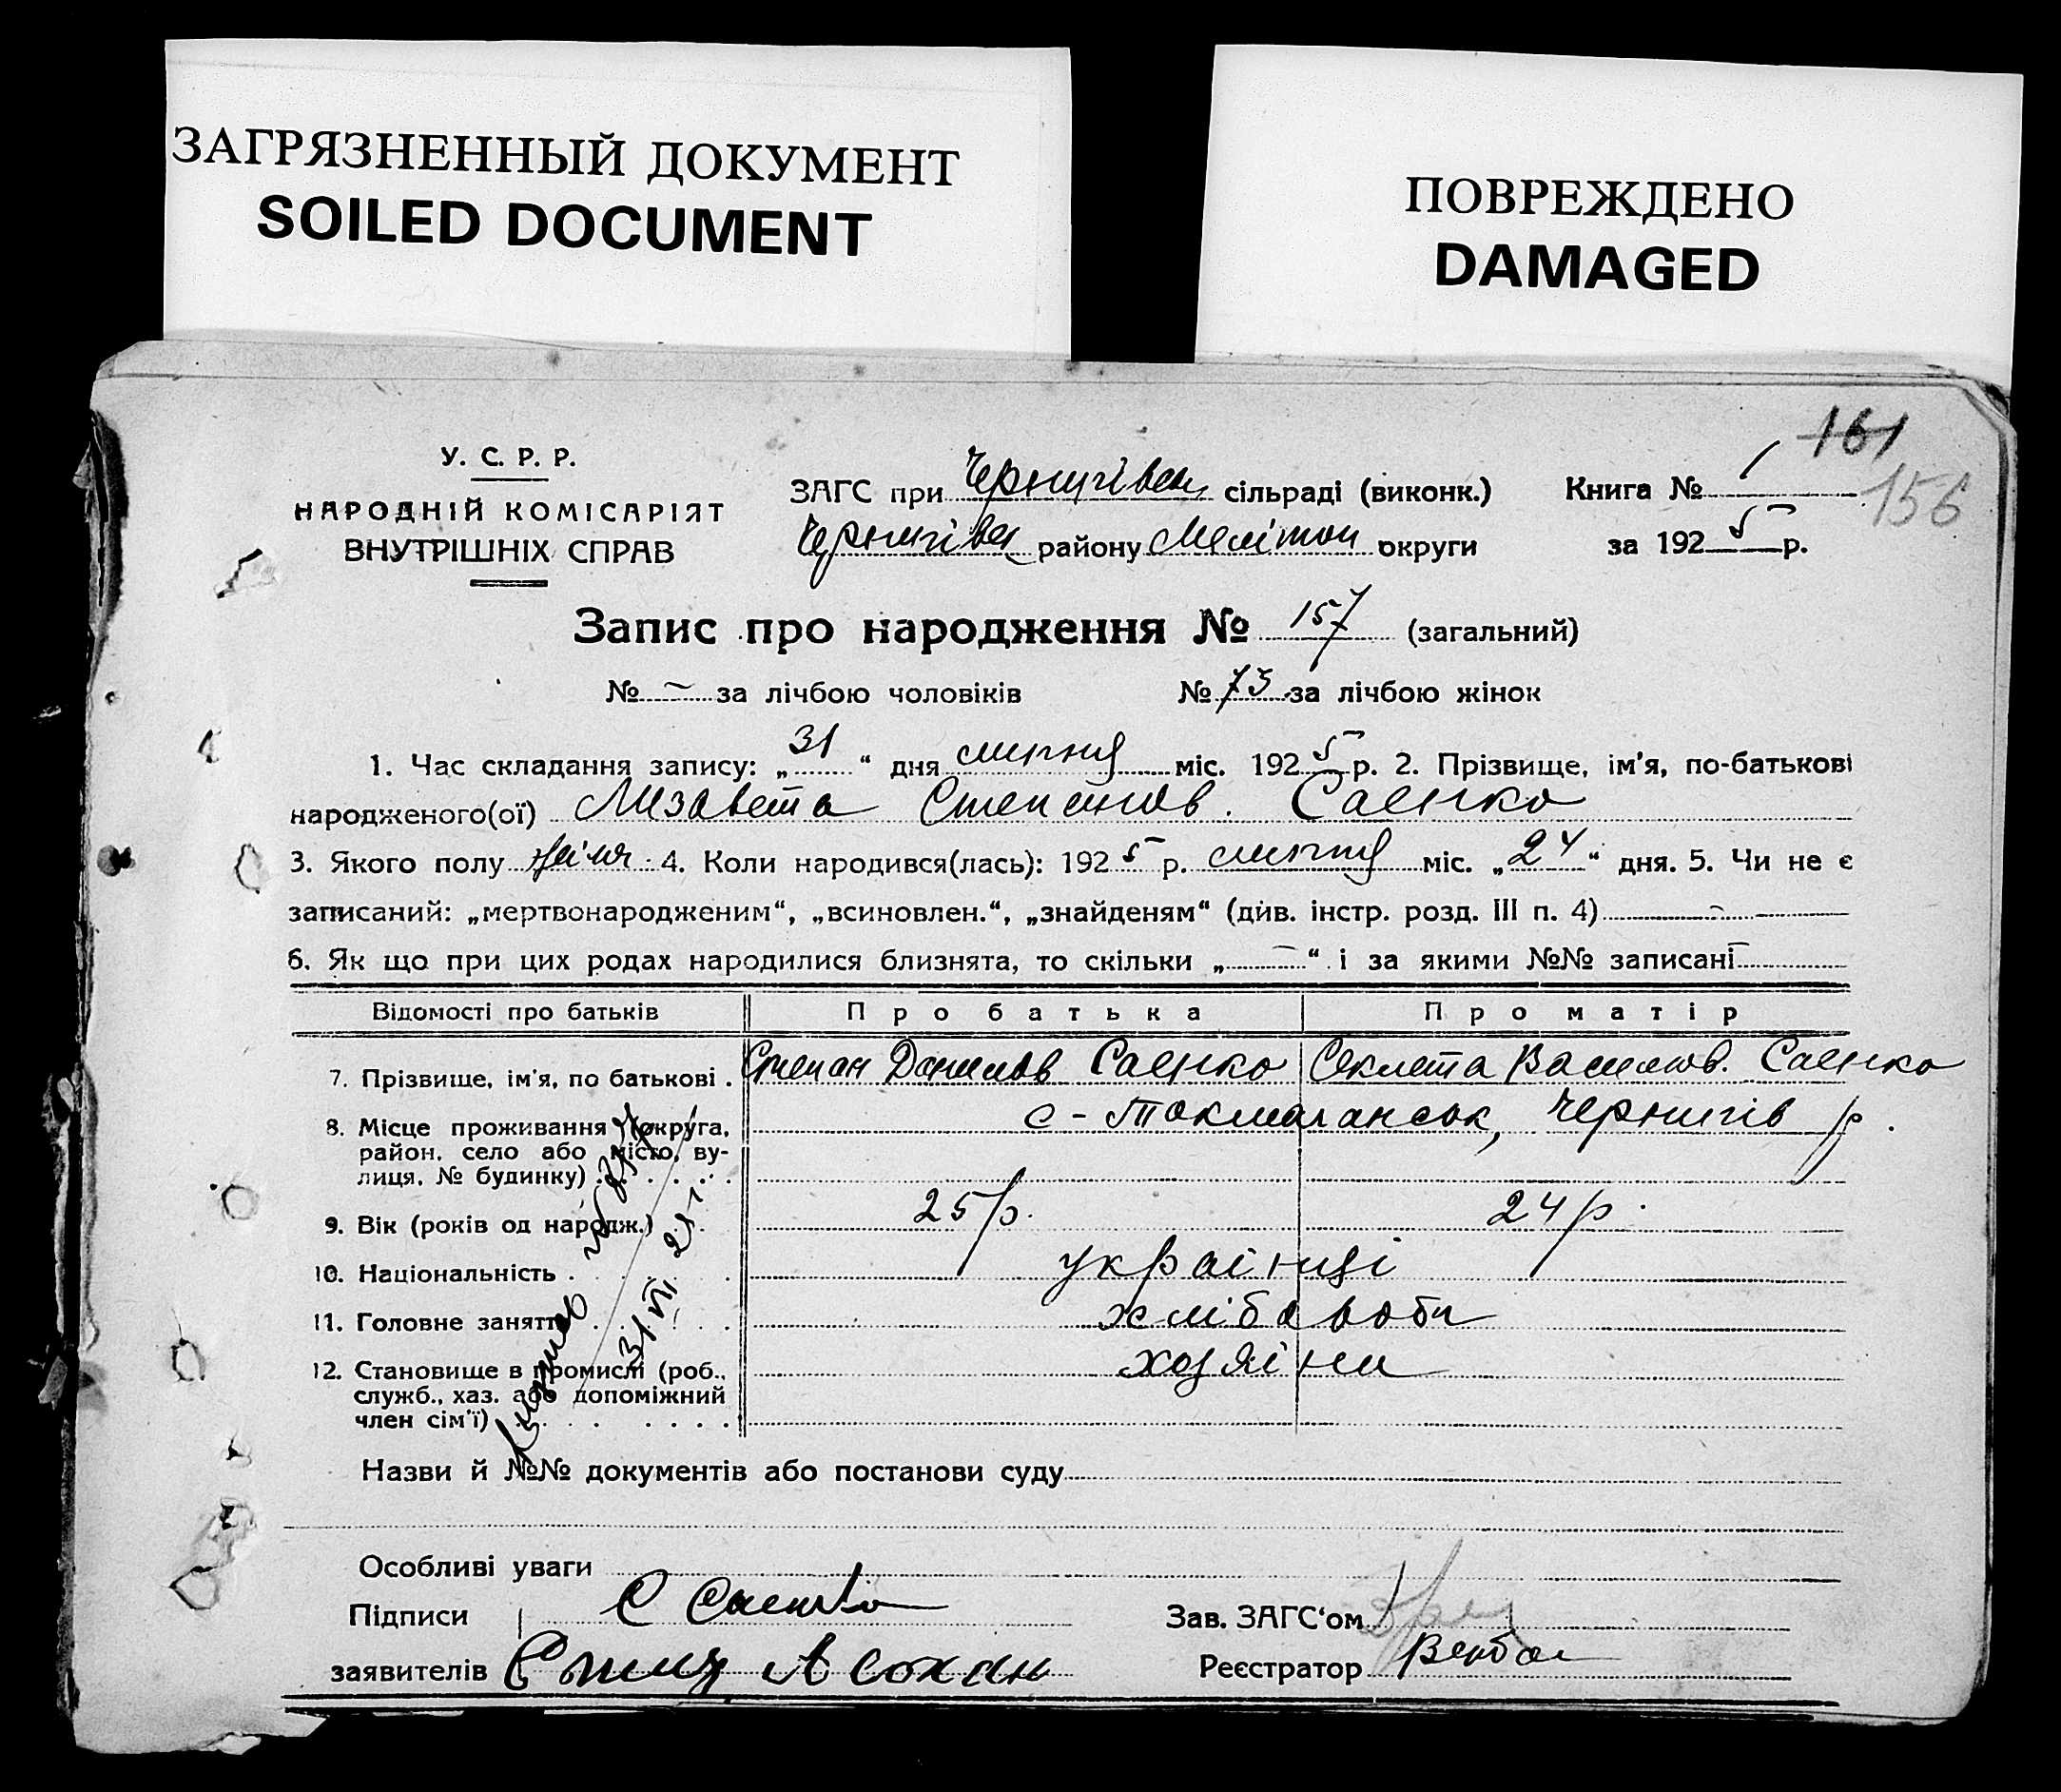 ЗАГРЯЗНЕННЫЙ ДОКУМЕНТ
SOILED DOCUMENT
ПОВРЕЖДЕНО
DAMAGED
161
156
У. С. Р. Р.
НАРОДНІЙ КОМІСАРІЯТ
ВНУТРІШНІХ СПРАВ
ЗАГС при Чернигівськ сільраді (виконк.) Книга № 1
Чернигівск району Мелітоп округи за 1925 р.
Запис про народження № 157 (загальний)
№ – за лічбою чоловіків № 73 за лічбою жінок
1. Час складання запису: „31“ дня липня міс. 1925 р. 2. Прізвище, ім'я, по-батькові
народженого(ої) Лизавета Степанов. Саенко
3. Якого полу жіноч. 4. Коли народився(лась): 1925 р. липня міс. „24“ дня. 5. Чи не є
записаний: „мертвонародженим“, „всиновлен.“, „знайденям“ (див. інстр. розд. III п. 4) –
6. Як що при цих родах народилися близнята, то скільки „–“ і за якими №№ записані –
Відомості про батьків Про батька Про матір
7. Прізвище, ім'я, по батькові . Степан Данилов Саенко Секлета Васильов. Саенко
8. Місце проживання (округа, район, село або місто, вулиця, № будинку) с-Токмачанськ, Чернигів р.
9. Вік (років од народж.) 25 р. 24 р.
10. Національність . украінці
11. Головне заняття хлібороби
12. Становище в промислі (роб., служб., хаз. або допоміжний член сім'ї) хозяіни
31 VII 25 г.
Назви й №№ документів або постанови суду
Особливі уваги
Підписи С Саенко Зав. ЗАГС'ом
заявителів Реєстратор